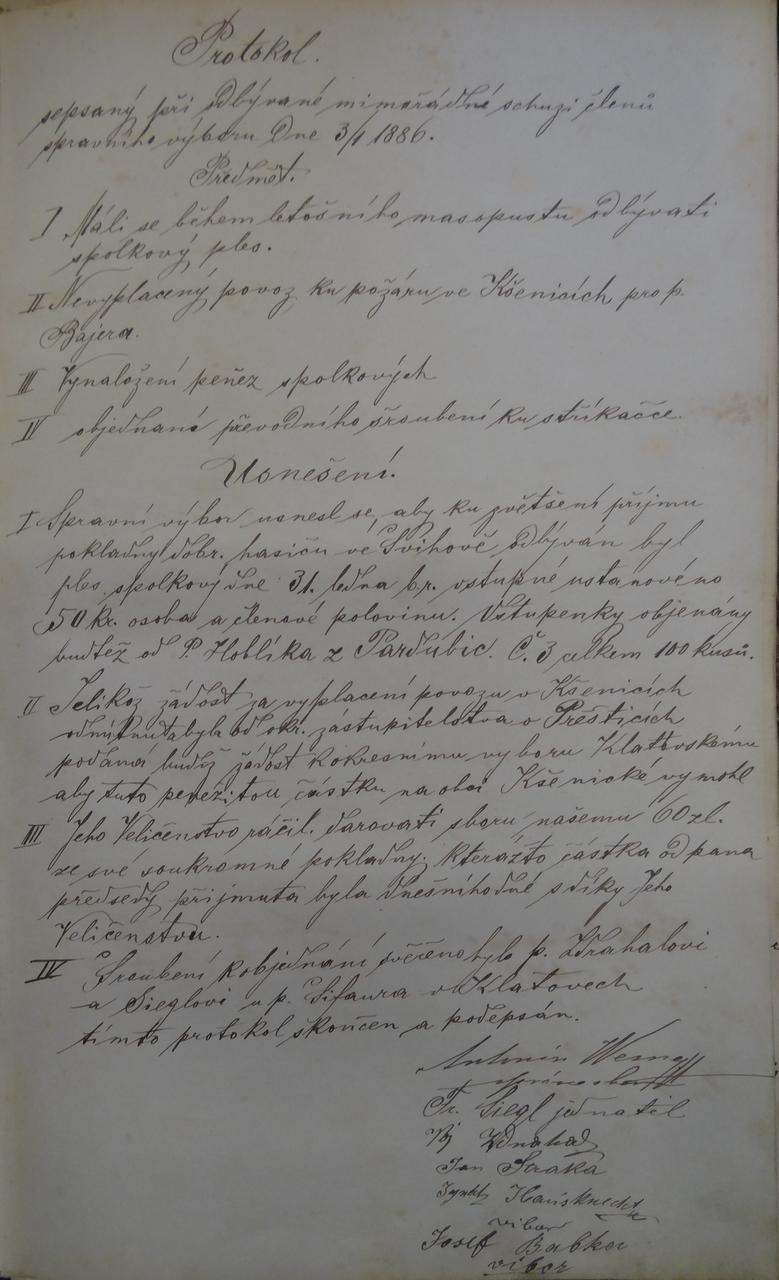 Protokol.
sepsaný při odbývané mimořádné schuzi členů
spravního výboru Dne 3/1 1886.
Předmět.
I Máli se během letošního masopustu odbývati
spolkový ples.
II Nevyplacený povoz ku požáru ve Kšenicích pro p.
Bajera.
III Vynaložení peňez spolkových
IV objednaní převodního šroubení ku stříkačce.
Usnešení.
I Spravní výbor usnesl se, aby ku zvětšení příjmu
pokladny dobr. hasičů ve Švihově odbýván byl
ples spolkový dne 31. ledna b.r. vstupné ustanoveno
50 kr. osoba a členové polovinu. Vstupenky objenány
buďtěž od P. Hoblíka z Pardubic. Č. 3 celkem 100 kusů.
II Jelikož žádost za vyplacení povozu v Kšenicích
odmítnuta byla od okr. zástupitelstva v Přešticích
podaná budiž žádost k okresnímu vyboru Klatovskému
aby tuto peněžitou částku na obci Kšenické vymohl
III Jeho Veličenstvo ráčil darovati sboru našemu 60 zl.
ze své soukromné pokladny. kterážto částka od pana
předsedy přijmuta byla dnešního dně s díky Jeho
Veličenstvu.
IV Šroubení k objednání svěčeno bylo p. Zdrahalovi
a Sieglovi u p. Šifaura v Klatovech
tímto protokol skončen a podepsán.
Antonín
Fr. Siegl jednatel
Zdrahal
Jan Straka
Hausknecht
vibor
Josef Babka
vibor